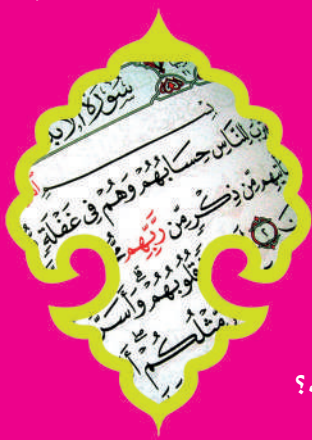 سُورَةُ الانب
لِلنَّاسِ حِسَابُهُمْ وَهُمْ فِى غَفْلَةٍ
مِّن ذِكْرٍ مِّن رَّبِّهِم
قُلُوبُهُمْ وَأَسَرُّ
مِّثْلُكُمْ أَ
؟